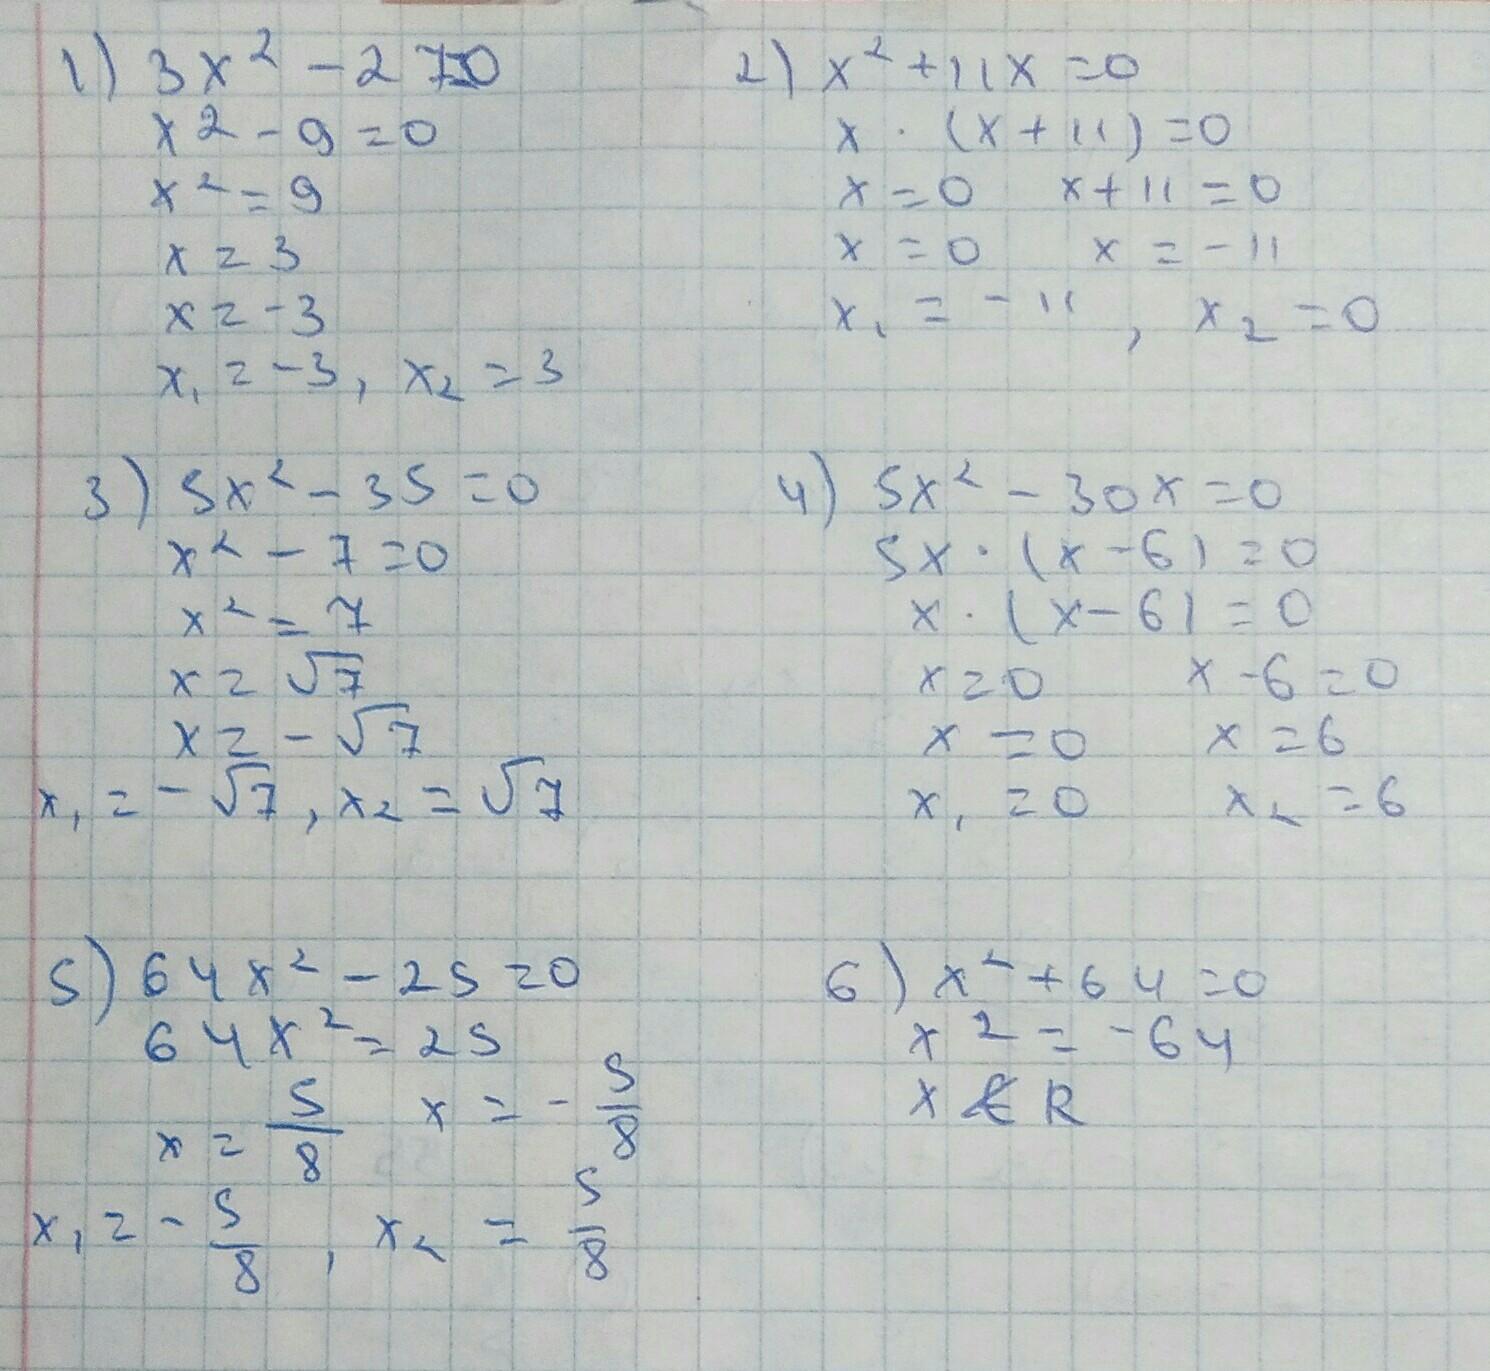 1) 3x² - 27=0
x² - 9 = 0
x² = 9
x = 3
x = -3
x₁ = -3, x₂ = 3
2) x² + 11x = 0
x · (x + 11) = 0
x = 0 x + 11 = 0
x = 0 x = -11
x₁ = -11, x₂ = 0
3) 5x² - 35 = 0
x² - 7 = 0
x² = 7
x = √7
x = -√7
x₁ = -√7, x₂ = √7
4) 5x² - 30x = 0
5x · (x - 6) = 0
x · (x - 6) = 0
x = 0 x - 6 = 0
x = 0 x = 6
x₁ = 0 x₂ = 6
5) 64x² - 25 = 0
64x² = 25
x = 5/8 x = -5/8
x₁ = -5/8, x₂ = 5/8
6) x² + 64 = 0
x² = -64
x ∉ R